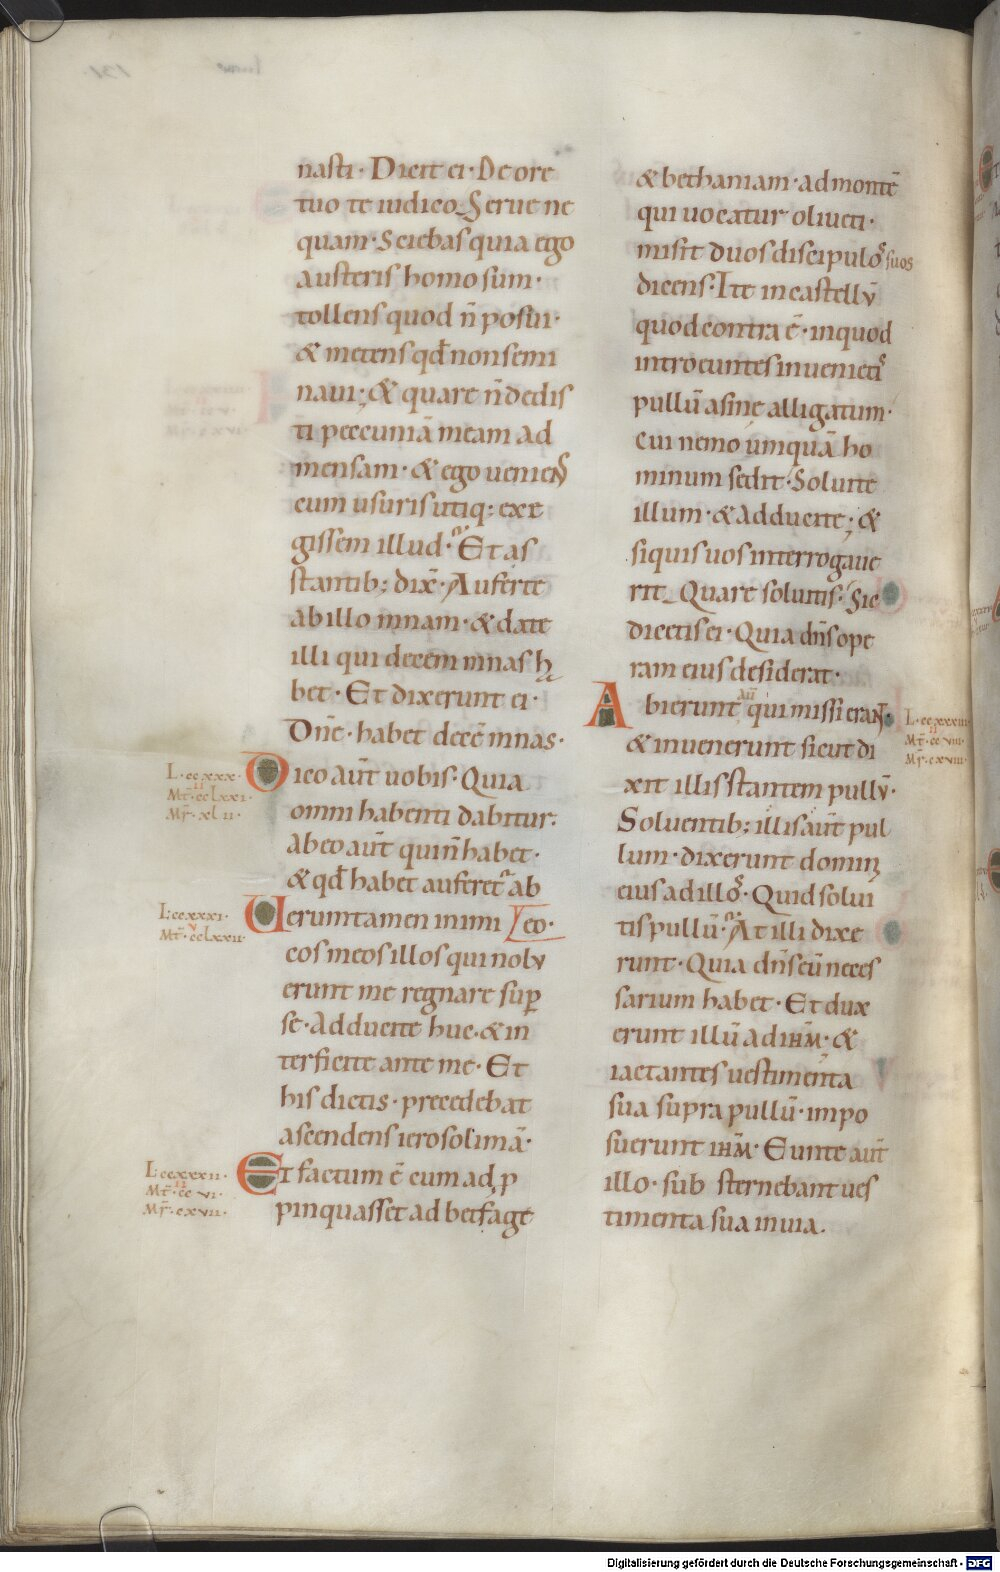 nasti· Dicit ei· De ore
tuo te iudico. Serue ne
quam· Sciebas quia ego
austeris homo sum·
tollens quod n̄ posui·
& metens qđ non semi
naui; & quare n̄ dedis
ti peccuniā meam ad
mensam· & ego ueniens
cum usuris utiq; exe
gissem illud· Et as
stantib; dix̄· Auferte
ab illo mnam· & date
illi qui decem mnas ha
bet· Et dixerunt ei·
Dn̄e· habet decē mnas·
L·ccxxx·
II
Mt̄·cclxxi·
Mr̄·xlii·
Dico aūt uobis· Quia
omni habenti dabitur·
Ab eo aūt qui n̄ habet·
& qđ habet auferet̄ ab
L·ccxxxi·
V
Mt̄·cclxxii
Ueruntamen inimi eo·
cos meos illos qui nolu
erunt me regnare sup̄
se· Adducite huc· & in
terficite ante me· Et
his dictis· precedebat
ascendens ierosolimā·
L·ccxxxii·
II
Mt̄·ccvi·
Mr̄·cxvii·
Et factum ē cum ad p
pinquasset ad betfage
& bethaniam· ad montē
qui uocatur oliueti·
misit duos discipulos suos
dicens· Ite in castellū
quod contra ē· in quod
introeuntes inuenietis
pullū asine alligatum·
cui nemo umquā ho
minum sedit· Soluite
illum· & adducite; &
siquis uos interrogaue
rit. Quare soluitis· Sic
dicetis ei· Quia dn̄s ope
ram eius desiderat·
Abierunt aū qui missi erant·
L·ccxxxiii
II
Mt̄·ccviii·
Mr̄·cxviii·
& inuenerunt sicut di
xit illis stantem pullū·
Soluentib; illis aūt pul
lum· dixerunt domini
eius ad illos· Quid solui
tis pullū· At illi dixe
runt· Quia dn̄s eū neces
sarium habet· Et dux
erunt illū ad ihm̄· &
iactantes uestimenta
sua supra pullū· impo
suerunt ihm̄· Eunte aūt
illo· sub sternebant ues
timenta sua in uia.
Digitalisierung gefördert durch die Deutsche Forschungsgemeinschaft - DFG